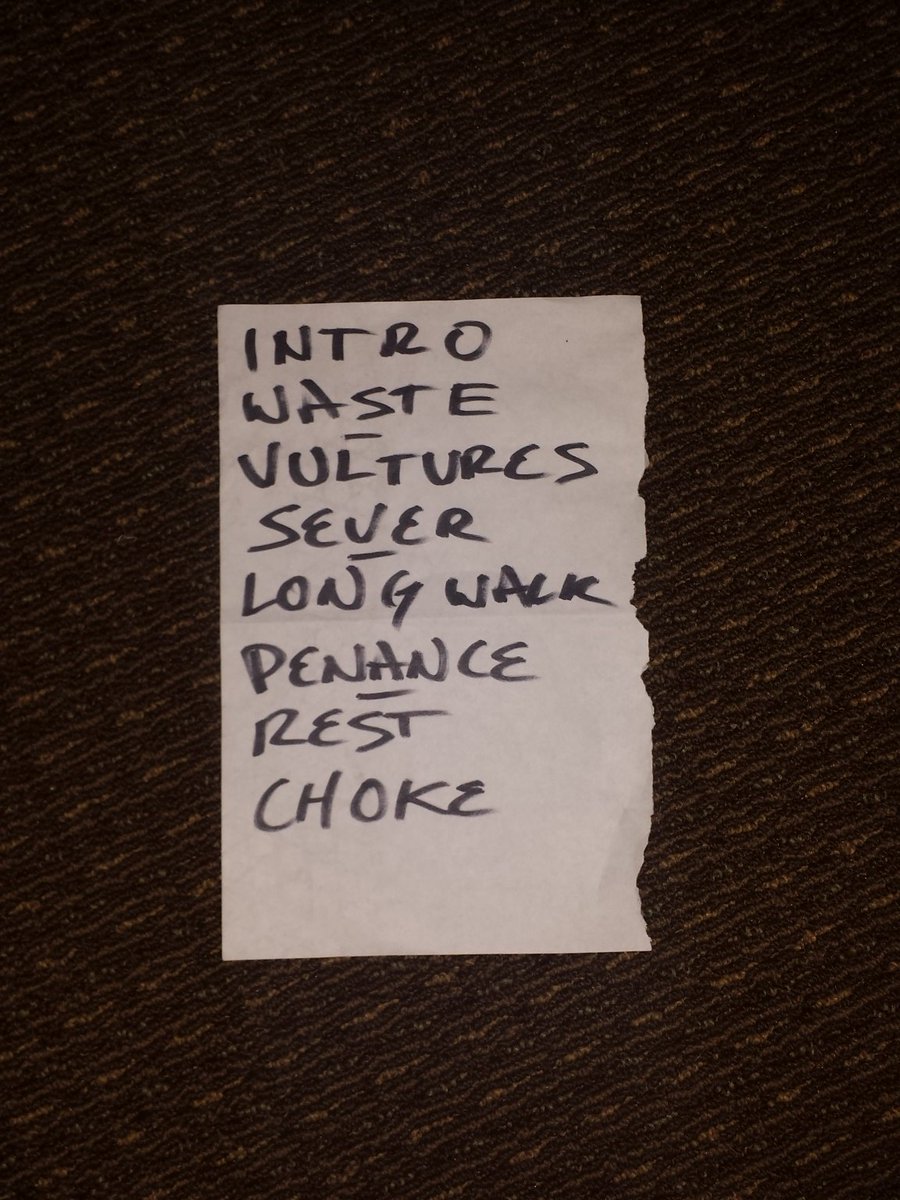 INTRO
WASTE
VULTURES
SEVER
LONG WALK
PENANCE
REST
CHOKE